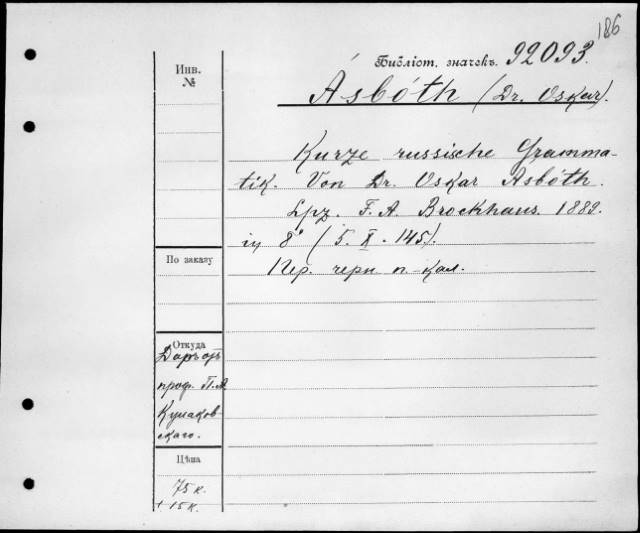 186
Библіот. значекъ. 92093.
Инв.
№
Ásbóth (Dr. Oskar).
Kurze russische Gramma-
tik. Von Dr. Oskar Asbóth.
Lpz. F. A. Brockhaus. 1889.
in 8° (5. X. 145).
Пер. черн п-кал.
По заказу
Откуда
Даръ отъ
проф. П. А.
Кулаков-
скаго.
Цѣна
75 к.
+ 15 к.